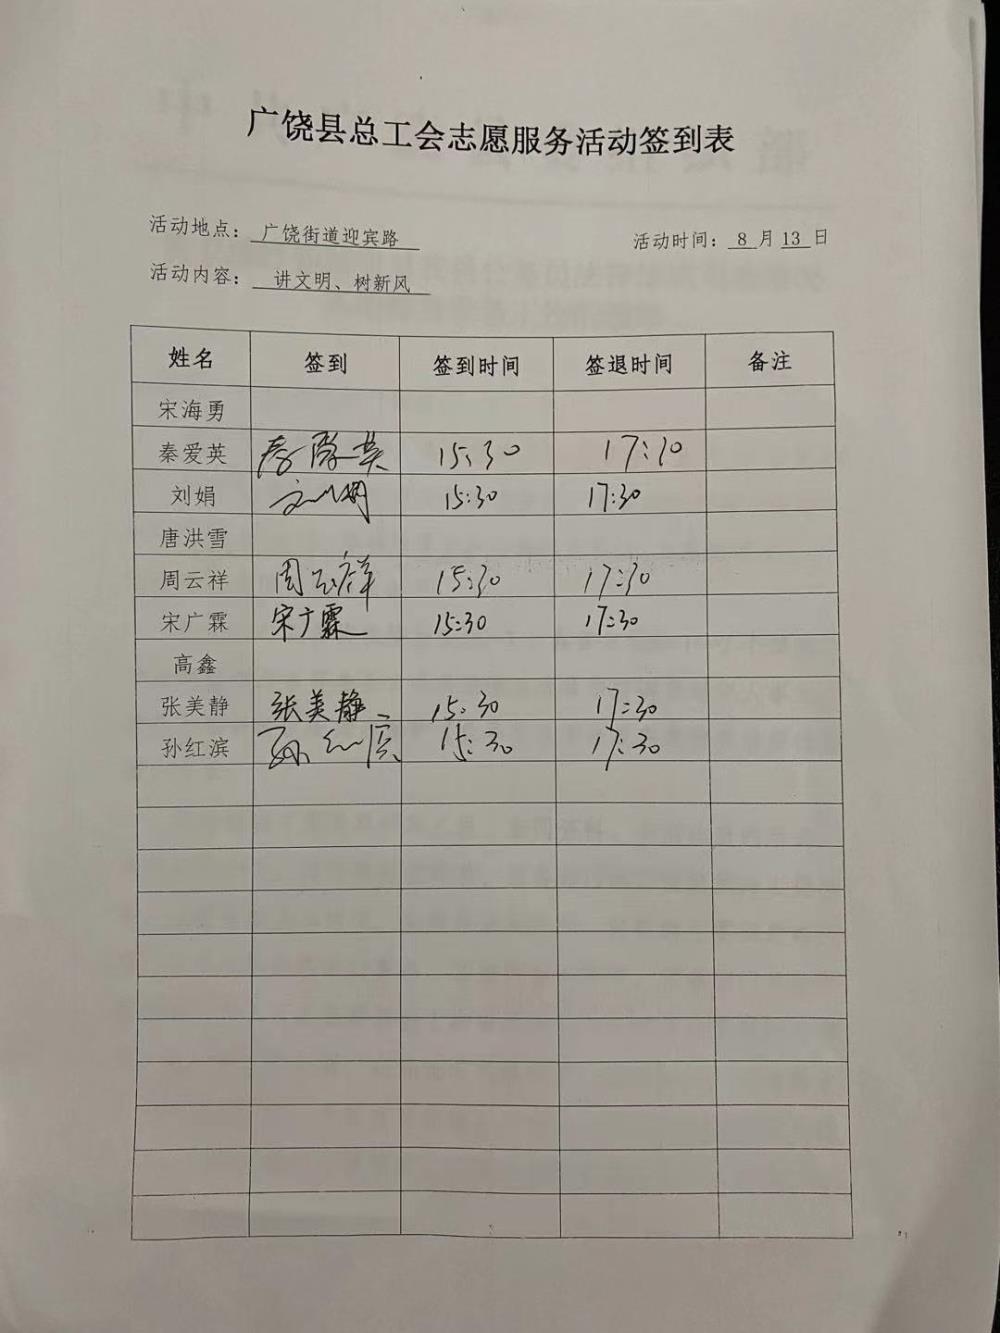 广饶县总工会志愿服务活动签到表
活动地点：广饶街道迎宾路 活动时间：8月13日
活动内容：讲文明、树新风
姓名 签到 签到时间 签退时间 备注
宋海勇
秦爱英 秦爱英 15:30 17:30
刘娟 刘娟 15:30 17:30
唐洪雪
周云祥 周云祥 15:30 17:30
宋广霖 宋广霖 15:30 17:30
高鑫
张美静 张美静 15:30 17:30
孙红滨 孙红滨 15:30 17:30